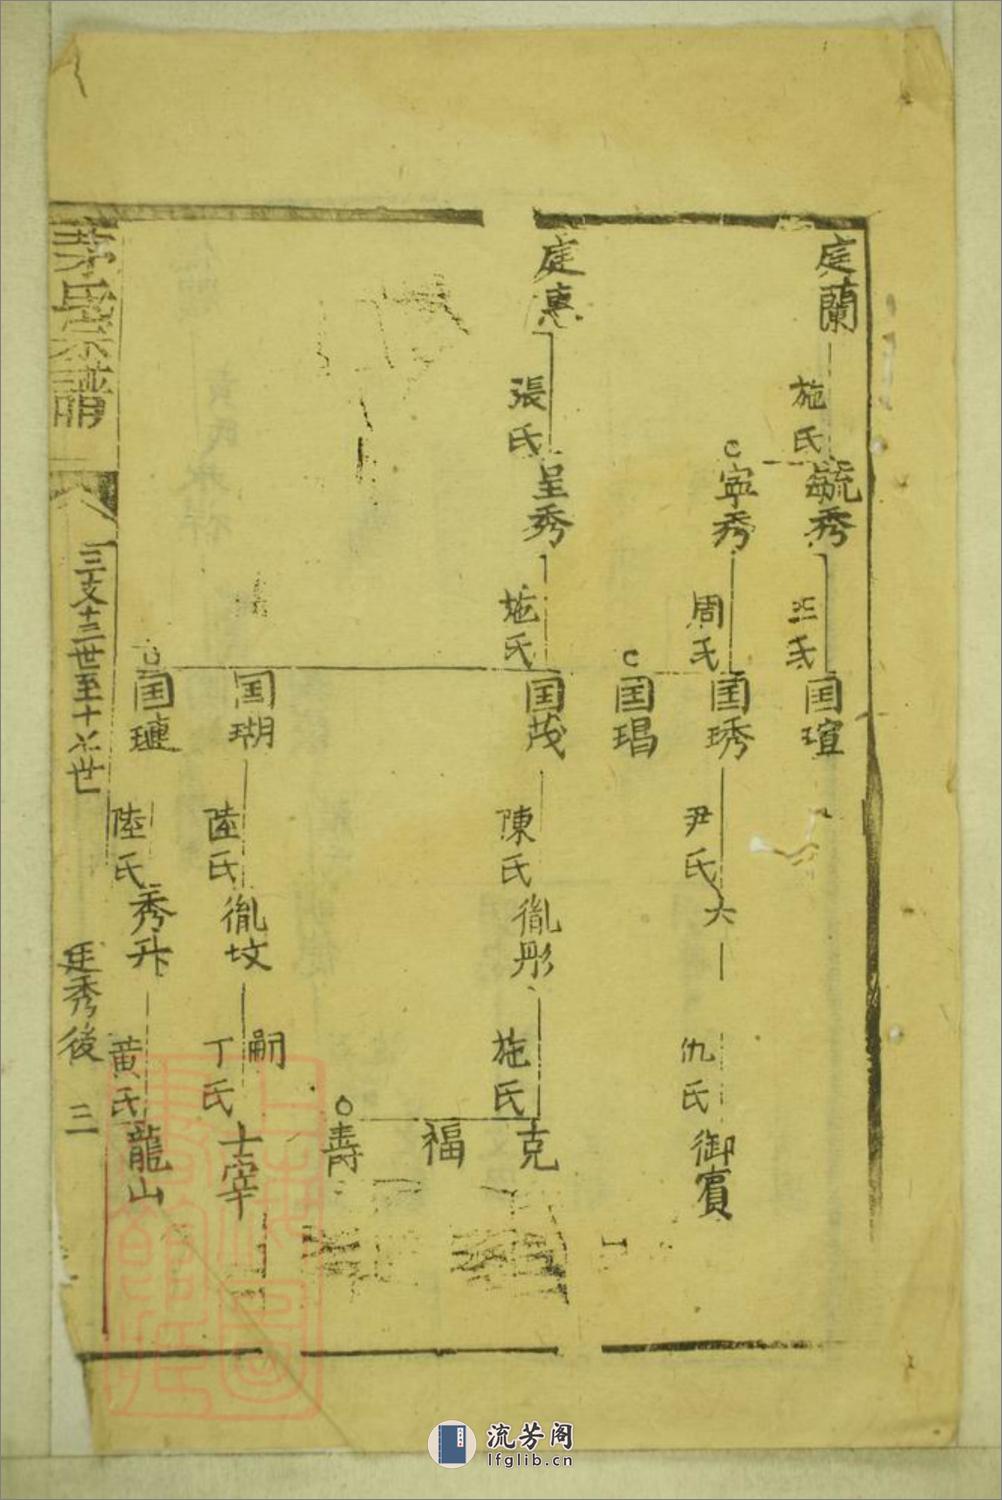 庭蘭
施氏
毓秀
王氏
囯瑄
寜秀
周氏
囯琇
尹氏
六
仇氏
御賓
囯琩
庭惠
張氏
呈秀
施氏
囯茂
陳氏
胤彤
施氏
克
福
壽
囯瑚
陸氏
胤坟
嗣
丁氏
士宰
囯璉
陸氏
秀升
黄氏
龍山
茅氏宗譜
三支十三世至十七世
廷秀後 三
流芳阁
lfglib.cn